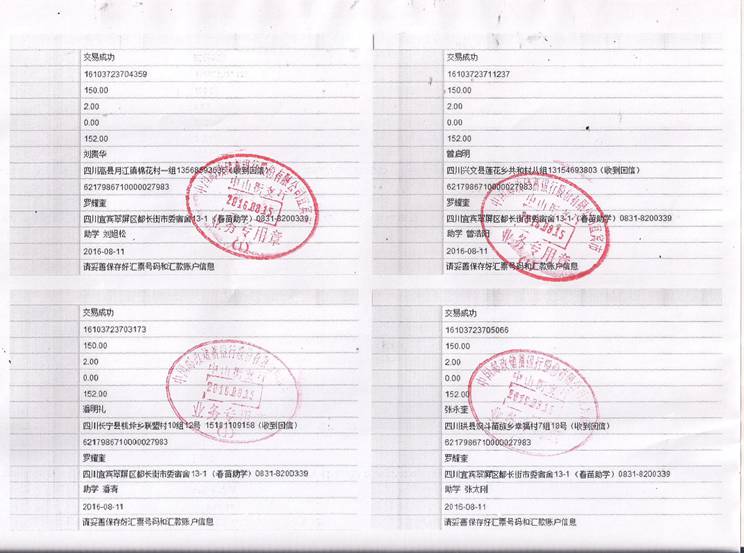 交易成功
16103723704359
150.00
2.00
0.00
152.00
刘贵华
四川高县月江镇棉花村一组
(收到回信)
6217986710000027983
罗耀奎
四川宜宾翠屏区都长街市委宿舍13-1 (春苗助学) 0831-8200339
助学 刘旭松
2016-08-11
请妥善保存好汇票号码和汇款账户信息
中山街支行
2016.08.15
业务专用章
(1)
交易成功
16103723711237
150.00
2.00
0.00
152.00
曾启明
四川兴文县莲花乡共和村八组13154693803 (收到回信)
6217986710000027983
罗耀奎
四川宜宾翠屏区都长街市委宿舍13-1 (春苗助学) 0831-8200339
助学 曾浩阳
2016-08-11
请妥善保存好汇票号码和汇款账户信息
2016.08.15
业务专用章
(1)
交易成功
16103723703173
150.00
2.00
0.00
152.00
潘明礼
四川长宁县桃坪乡联盟村10组12号 15181109158 (收到回信)
6217986710000027983
罗耀奎
四川宜宾翠屏区都长街市委宿舍13-1 (春苗助学) 0831-8200339
助学 潘涛
2016-08-11
请妥善保存好汇票号码和汇款账户信息
2016.08.15
业务专用章
(1)
交易成功
16103723705066
150.00
2.00
0.00
152.00
张永奎
四川珙县观斗苗族乡幸福村7组18号 (收到回信)
6217986710000027983
罗耀奎
四川宜宾翠屏区都长街市委宿舍13-1 (春苗助学) 0831-8200339
助学 张太刚
2016-08-11
请妥善保存好汇票号码和汇款账户信息
2016.08.15
业务专用章
(1)